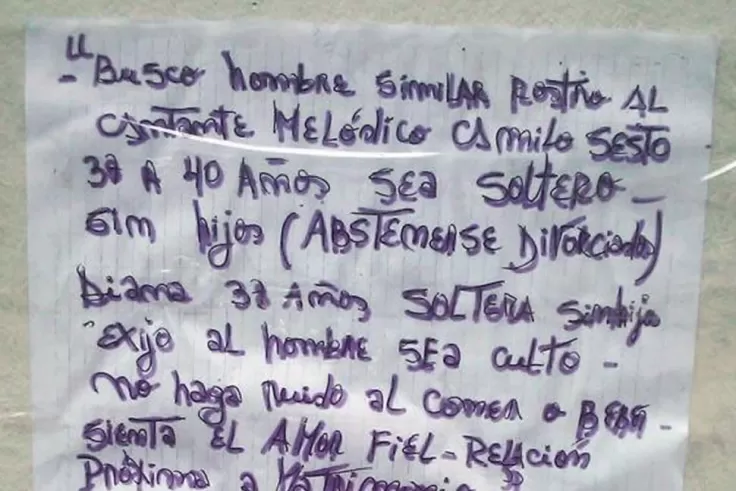 "Busco hombre similar rostro al
cantante melódico Camilo Sesto
38 a 40 años sea soltero -
sin hijos (Abstenerse divorciados)
Diana 37 años soltera sin hijo
exijo al hombre sea culto -
no haga ruido al comer o beber -
sienta el amor fiel - relación
próxima a matrimonio"